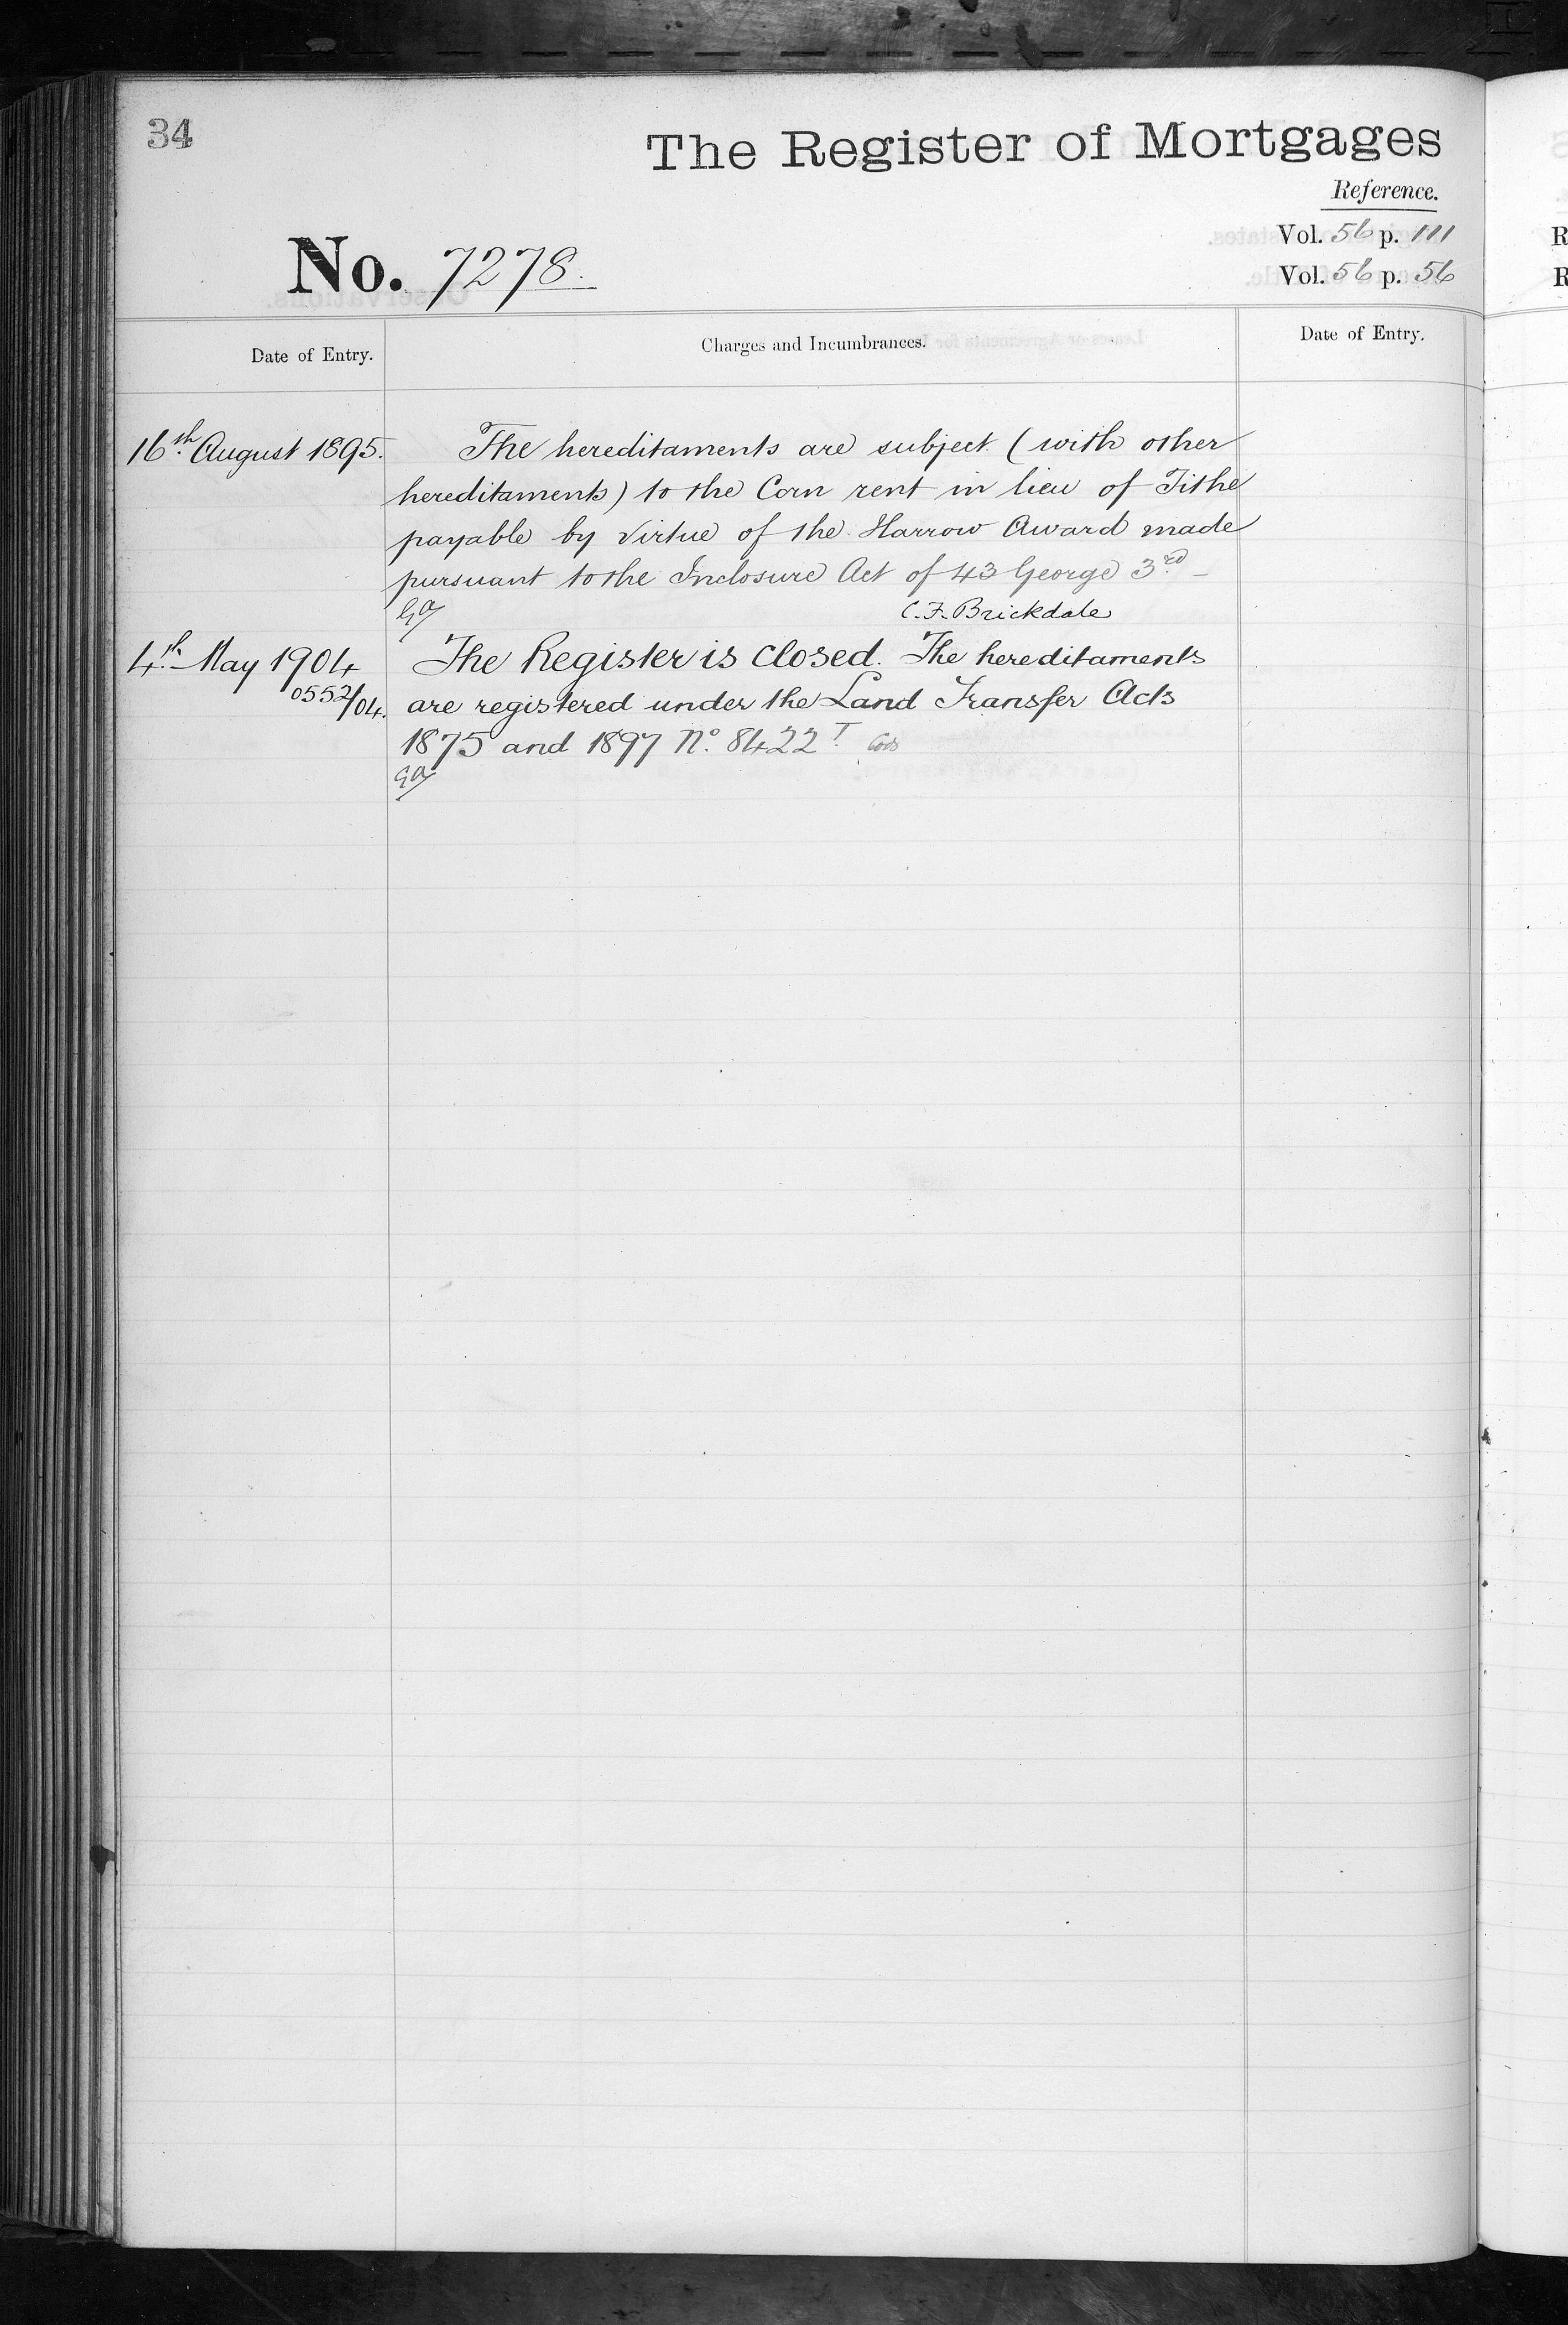 34
The Register of Mortgages
Reference.
No. 7278.
Vol. 56 p. 111
Vol. 56 p. 56
Date of Entry.
Charges and Incumbrances.
Date of Entry.
16th August 1895.
The hereditaments are subject (with other
hereditaments) to the Corn rent in lieu of Tithe
payable by virtue of the Harrow Award made
pursuant to the Inclosure Act of 43 George 3rd –
C. F. Brickdale
4th May 1904
0552/04.
The Register is closed. The hereditaments
are registered under the Land Transfer Acts
1875 and 1897 No. 8422